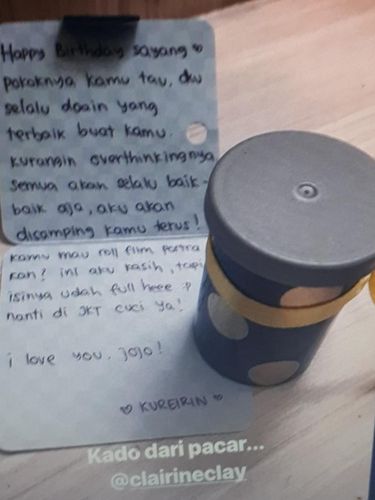 Happy Birthday sayang
pokoknya kamu tau, aku
selalu doain yang
terbaik buat kamu.
kurangin overthinkingnya
semua akan selalu baik-
baik aja, aku akan
disamping kamu terus!
kamu mau roll film portra
kan? ini aku kasih, tapi
isinya udah full heee :p
nanti di JKT cuci ya!
i love you, jojo!
KUREIRIN
Kado dari pacar...
@clairineclay